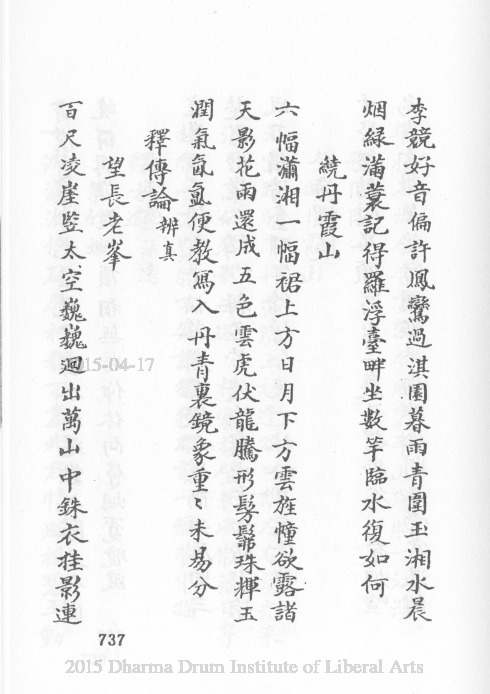 李競好音偏許鳳鸞過淇園暮雨青圍玉湘水晨
烟綠滿蓑記得羅浮臺畔坐數竿臨水復如何
繞丹霞山
六幅瀟湘一幅裙上方日月下方雲旌幢欲露諸
天影花雨還成五色雲虎伏龍騰形髣髴珠輝玉
潤氣氤氳便教寫入丹青裏鏡象重〻未易分
釋傳論辨真
望長老峯
百尺凌崖竪太空巍巍迴出萬山中銖衣挂影連
737
2015-04-17
2015 Dharma Drum Institute of Liberal Arts